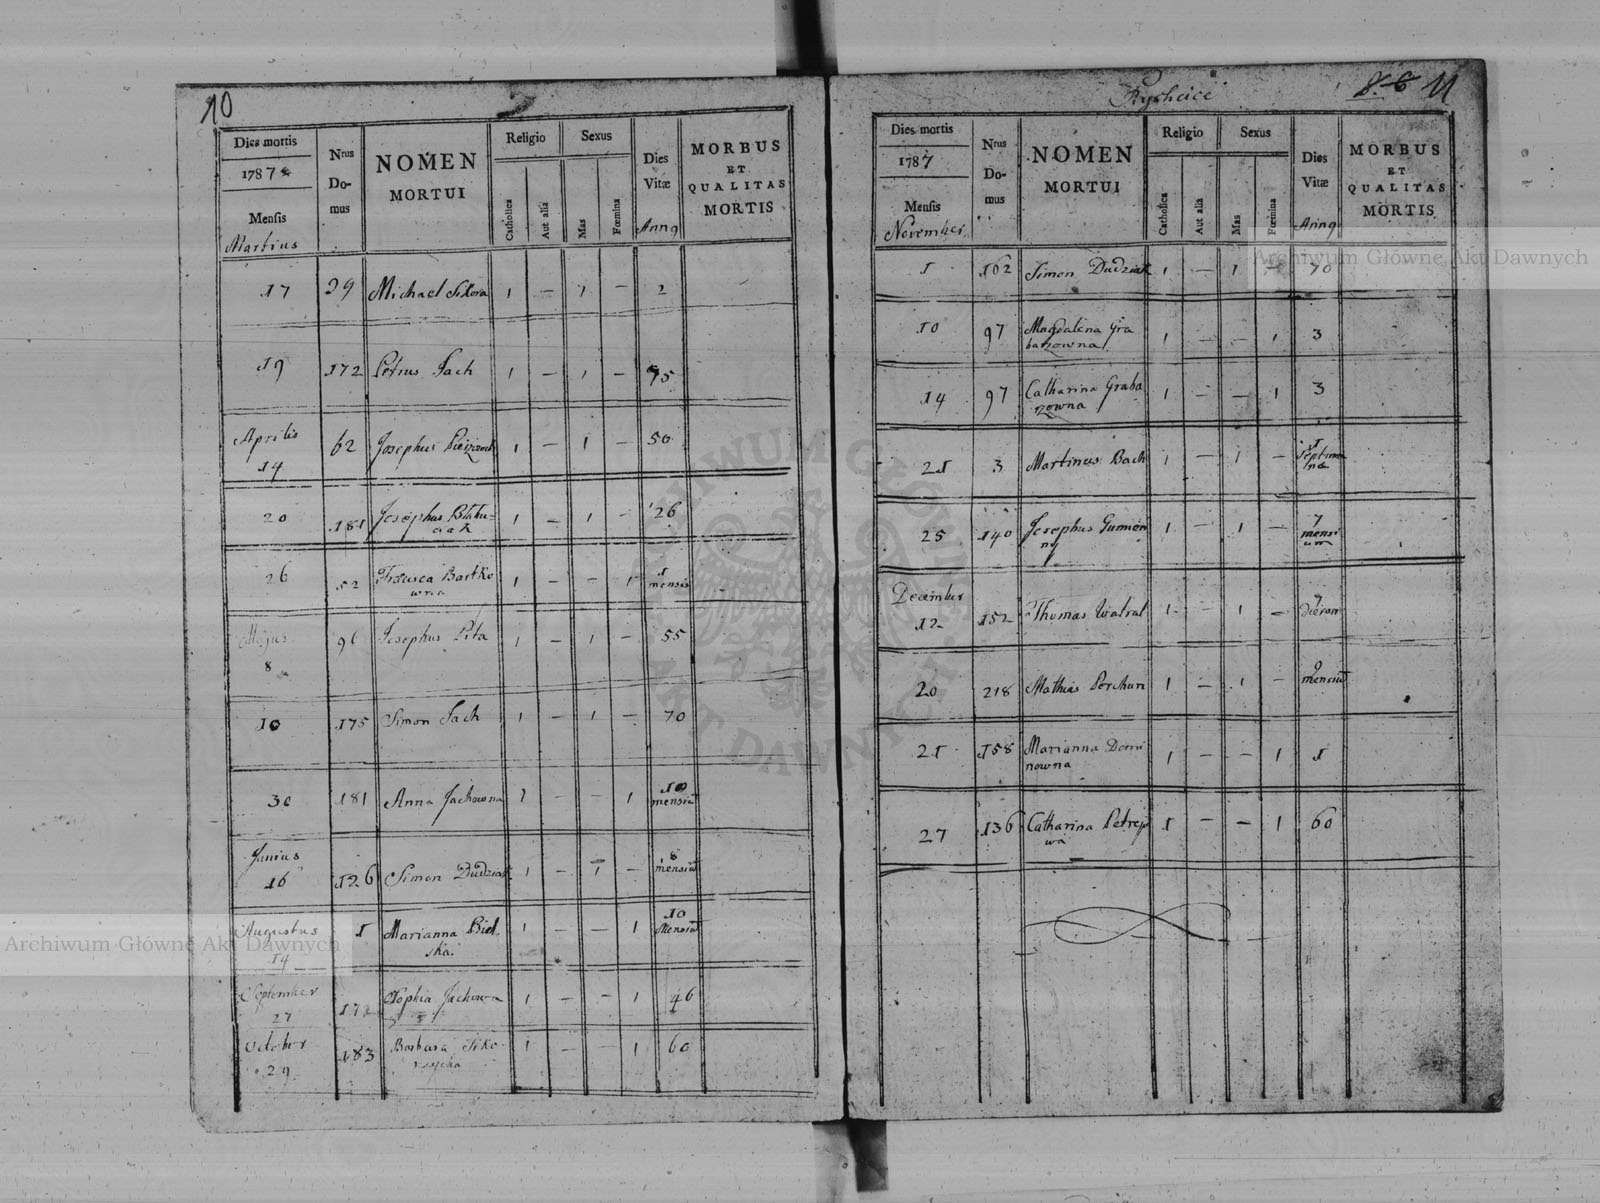 10
Dies mortis
1787
Mensis
Martius
Nrus
Do-
mus
NOMEN
MORTUI
Religio
Catholica
Aut alia
Sexus
Mas
Fœmina
Dies
Vitæ
MORBUS
ET
QUALITAS
MORTIS
17 39 Michael Sikora 1 — 1 — 2
19 172 Petrus Jach 1 — 1 — 75
Aprilis
14 62 Josephus 1 — 1 — 50
20 181 Josephus 1 — 1 — 26
26 52 Bartko
wna 1 — — 1 1
mensis
Majus
8 96 Josephus Pita 1 — 1 — 55
10 175 Simon Jach 1 — 1 — 70
30 181 Anna Jachowna 1 — — 1 10
mensiu
Junius
16 126 Simon Dudziak 1 — 1 — 8
mensiu
Augustus
14 1 Marianna Biel
ska 1 — — 1 10
Mensiu
September
27 172 Sophia Jachowa 1 — — 1 46
October
29 183 Barbara Siko
1 — — 1 60
Rychcice
11
Dies mortis
1787
Mensis
November
Nrus
Do-
mus
NOMEN
MORTUI
Religio
Catholica
Aut alia
Sexus
Mas
Fœmina
Dies
Vitæ
MORBUS
ET
QUALITAS
MORTIS
1 162 Simon Dudziak 1 — 1 — 70
10 97 Magdalena Gra
barzowna 1 — — 1 3
14 97 Catharina Graba
rzowna 1 — — 1 3
21 3 Martinus Bach 1 — 1 — 1
Septima
na
25 140 Josephus Gumien
ny 1 — 1 — 7
mensi
um
December
12 152 Thomas Watral 1 — 1 — 7
dierum
20 218 Mathias Perchun 1 — 1 — 9
mensiu
21 158 Marianna Domi
nowna 1 — — 1 1
27 136 Catharina Petrep
wa 1 — — 1 60
ARCHIWUM GŁÓWNE
AKT DAWNYCH
Archiwum Główne Akt Dawnych
Archiwum Główne Akt Dawnych